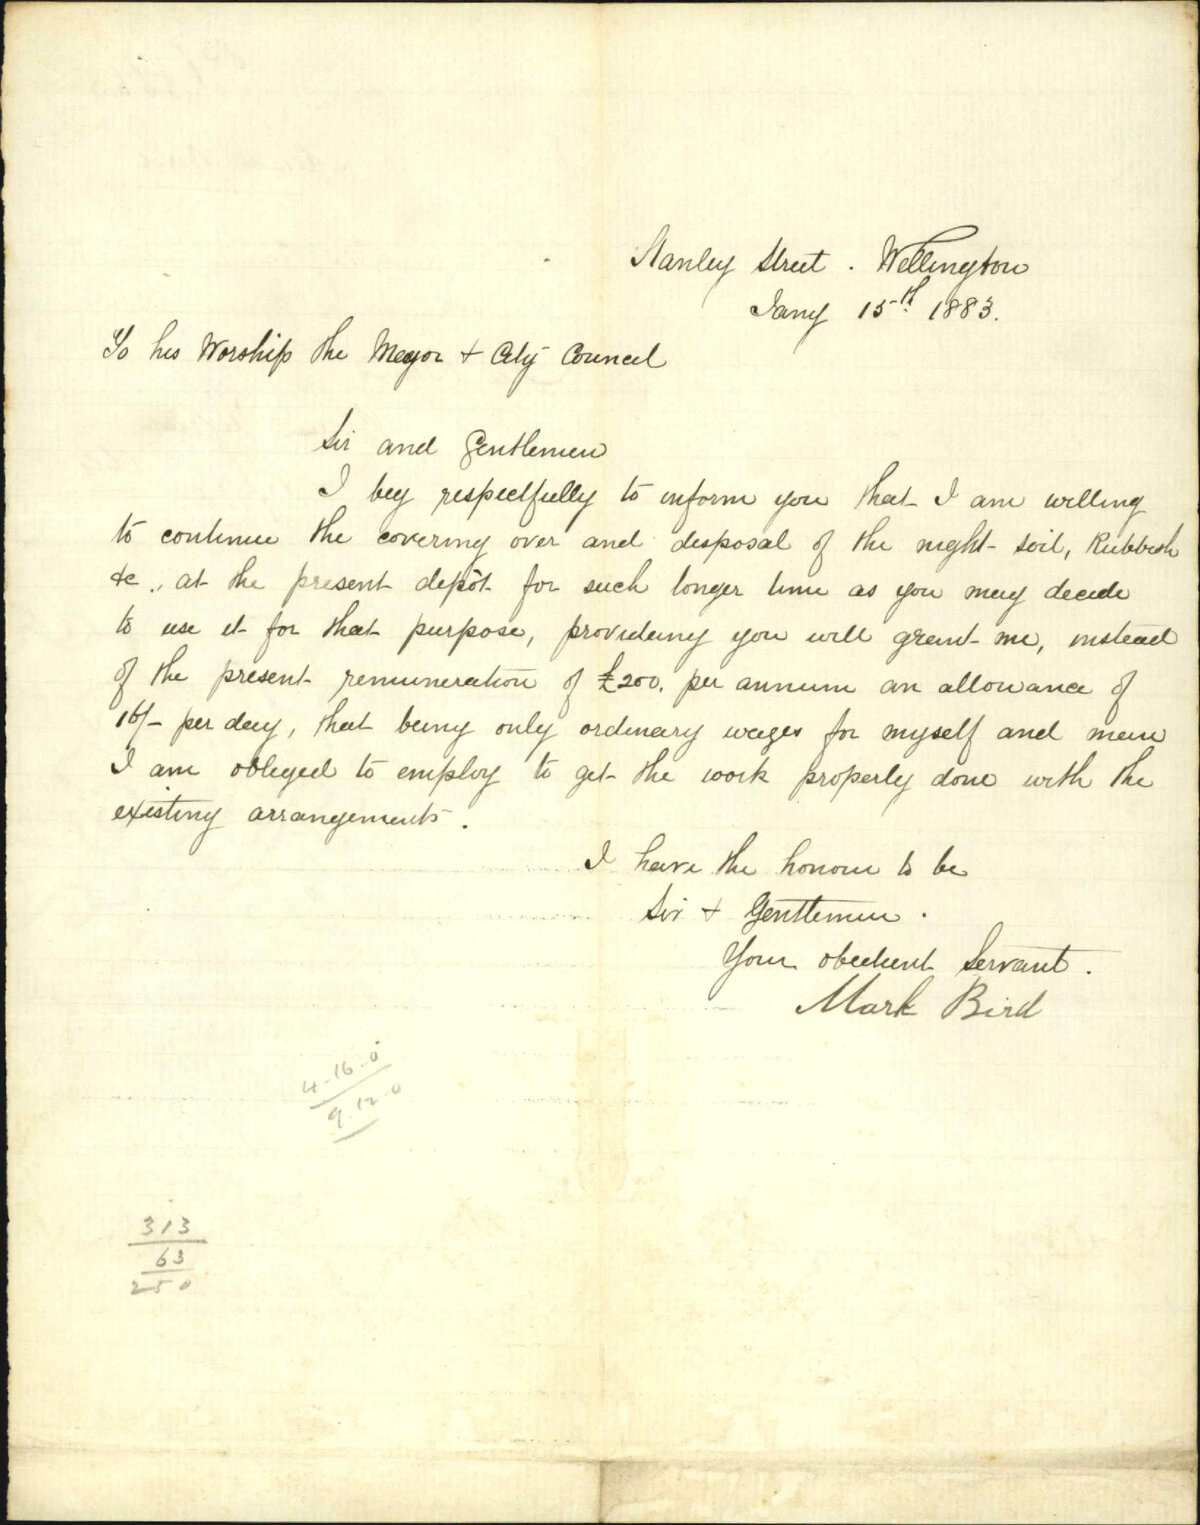 Stanley Street. Wellington
Jany 15th. 1883.
To his Worship the Mayor & City Council
Sir and Gentlemen
I beg respectfully to inform you that I am willing
to continue the covering over and disposal of the night soil, Rubbish
&c., at the present depôt for such longer time as you may decide
to use it for that purpose, providing you will grant me, instead
of the present remuneration of £200. per annum an allowance of
16/- per day, that being only ordinary wages for myself and man
I am obliged to employ to get the work properly done with the
existing arrangements.
I have the honour to be
Sir & Gentlemen.
Your obedient Servant.
Mark Bird
4-16..0
9.12.0
313
63
250